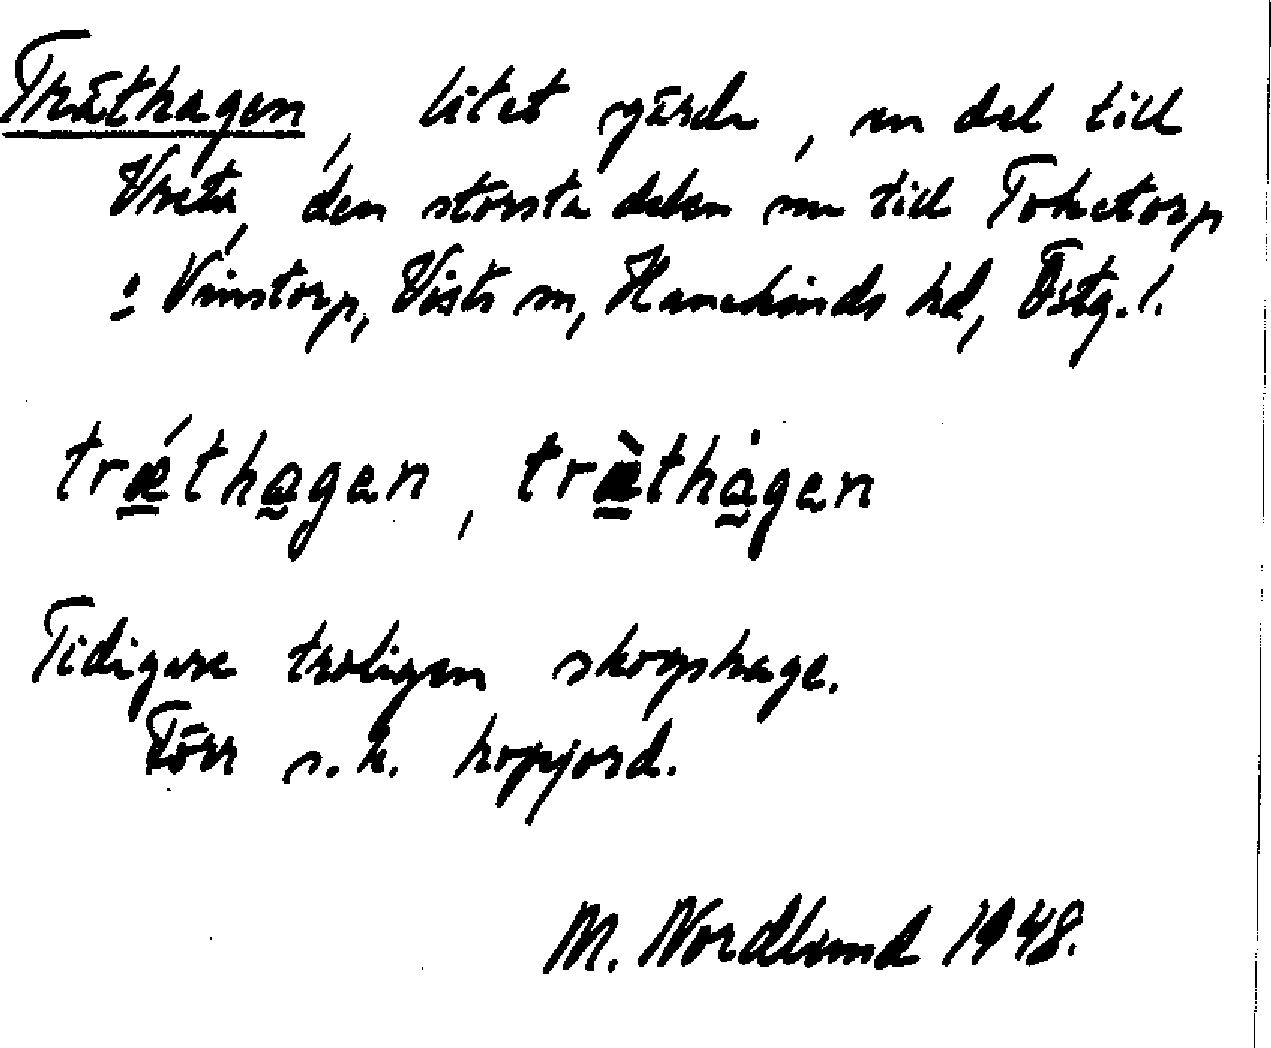 Träthagen, litet gärde, en del till
Vreta, den största delen nu till Toketorp
i Vinstorp, Vists sn, Hanekinds hd, Östg. l.
træ̀thagen, træ̀thàgen
Tidigare troligen skogshage.
Förr s.k. hopjord.
M. Nordlund 1948.